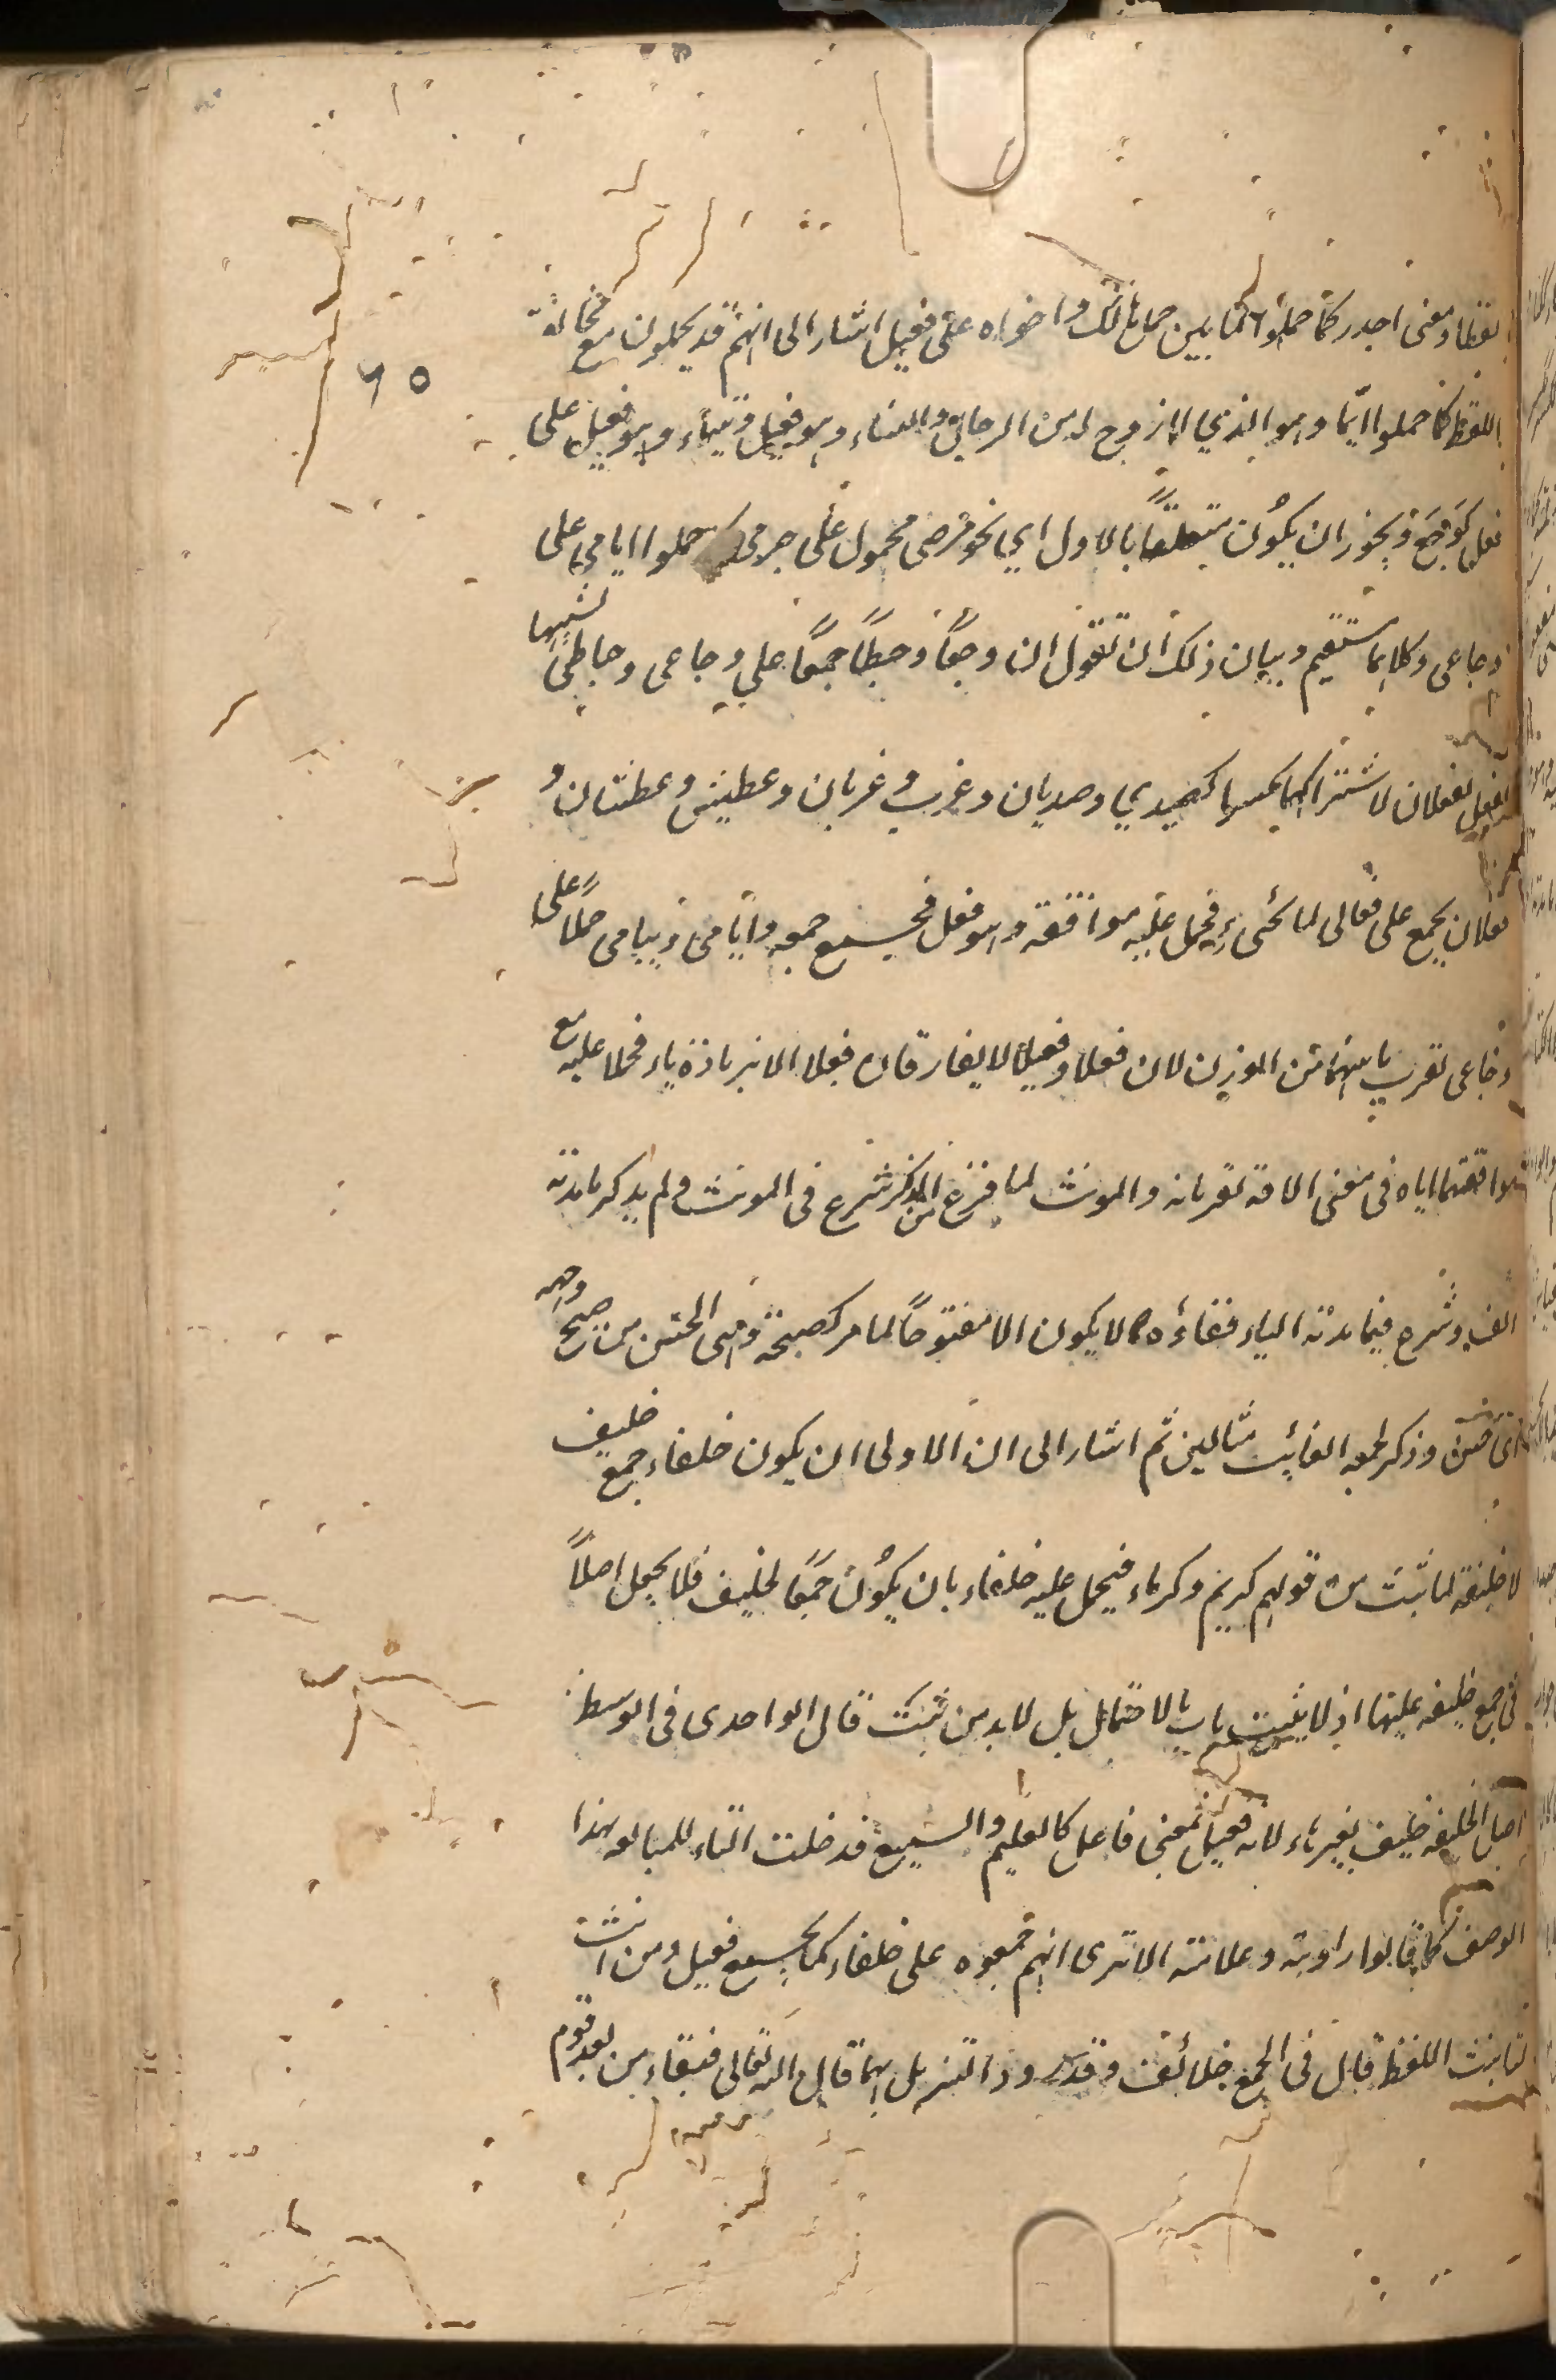 لفظا ومعنى اجدر كما حملوا لما بين حمل هالك واخواه على فعيل اشار الى انهم قد يحملون مع مخالفة
٦٥
اللفظ كما حملوا ايّما وهو الذي لا زوج له من الرجال والنساء وهو فيعل ويتيماً وهو فعيل على
فعل كوجع ويجوز ان يكون متعلقاً بالاول اي نحو مرضى محمول على جرحى كما حملوا ايامى على
وجاعى وكلاهما مستقيم وبيان ذلك ان تقول ان وجعاً وحبطاً جمعا على وجاعى وحباطى تشبيها
لفعل بفعلان لاشتراكهما كصدي وصديان وغرث وغرثان وعطش وعطشان و
فعلان يجمع على فعالى لما سيجيء فحمل عليه موافقه وهو فعل فجمع جمعه وايامى ويتامى حملاً على
وجاعى لقرب ما بينهما من الوزن لان فعلا وفعيلا لا يفارقان فعلا الا بزيادة ياء فحملا عليه مع
موافقتهما اياه في معنى الآفة لقربانه والمونث لما فرغ من المذكر شرع في المونث ولم يذكر ما مدته
الف وشرع فيما مدته الياء ففاءه لا يكون الا مفتوحاً لما مر كصبيحة وهي الحسن من صبح وجهه
اى حسن وذكر لجمعه الغائب مثالين ثم اشار الى ان الاولى ان يكون خلفاء جمع خليف
لا خليفة لما ثبت من قولهم كريم وكرماء فيحمل عليه خلفاء بان يكون جمعا لخليف فلا يجعل اصلاً
في جمع خليفة عليها اذ لا يثبت باب بالاحتمال بل لا بد من ثبت قال الواحدى في الوسط
اصل الخليفة خليف بغير هاء لانه فعيل بمعنى فاعل كالعليم والسميع فدخلت التاء للمبالغه بهذا
الوصف كما قالوا راوية وعلامة الا ترى انهم جمعوه على خلفاء كما يجمع فعيل ومن انث
لتانيث اللفظ قال في الجمع خلائف وقد ورد التنزيل بهما قال الله تعالى خلفاء من بعد قوم